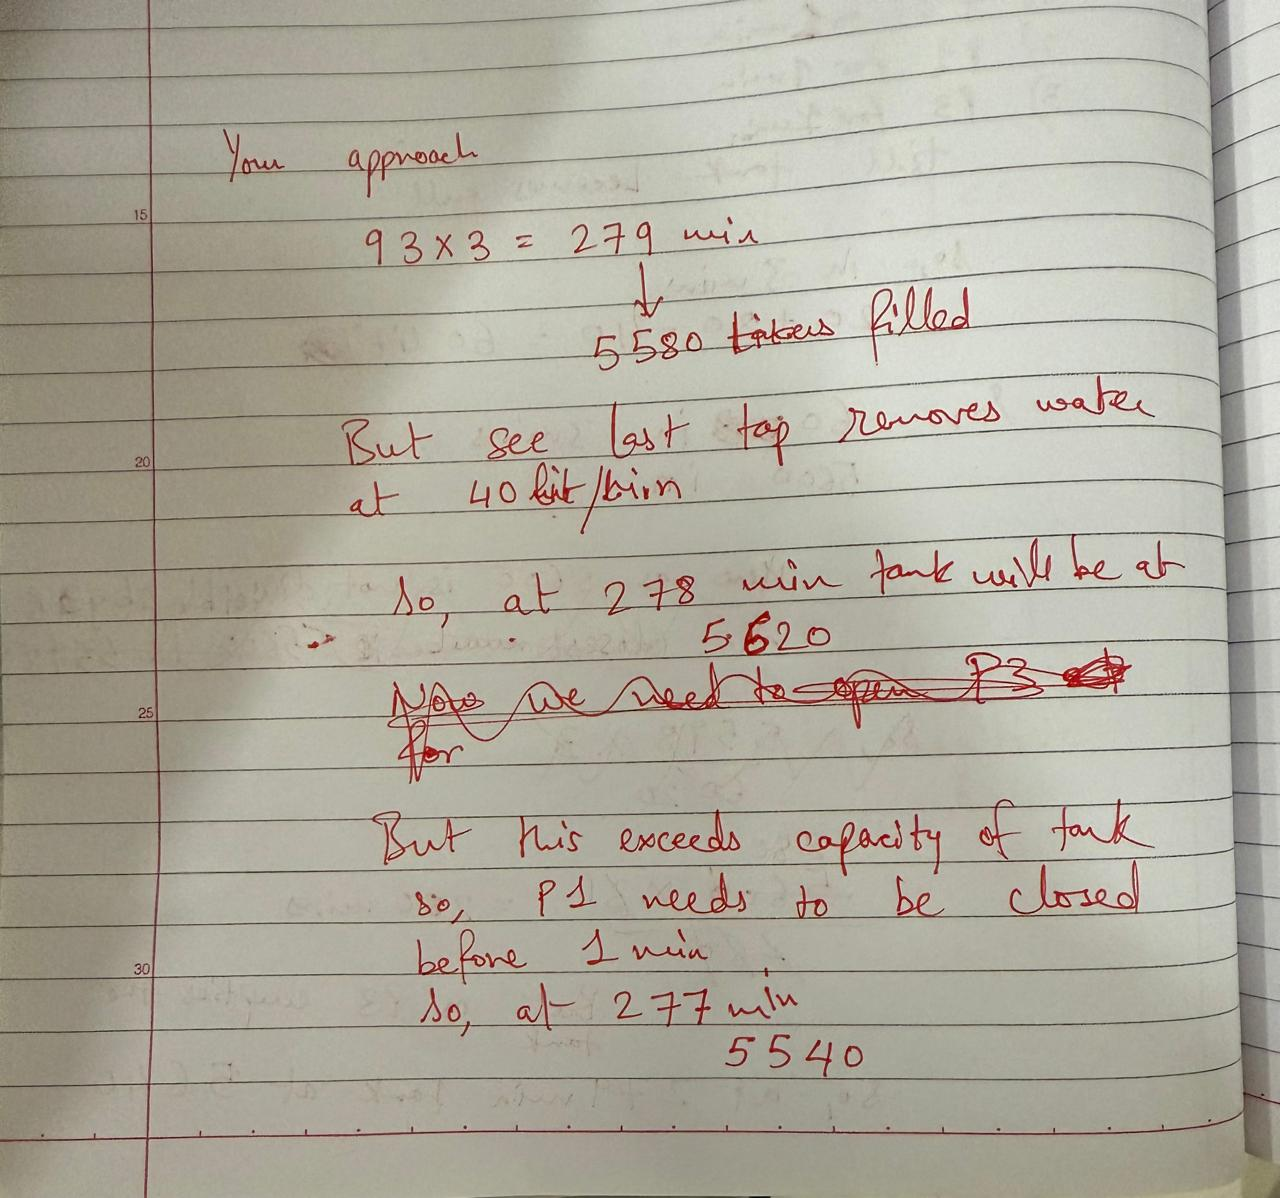 Your approach
15
93 x 3 = 279 min
↓
5580 liters filled
But see last tap removes water
20
at 40 lit/min
So, at 278 min tank will be at
5620
Now we need to open P3
25
for
But this exceeds capacity of tank
so, P1 needs to be closed
before 1 min
30
so, at 277 min
5540